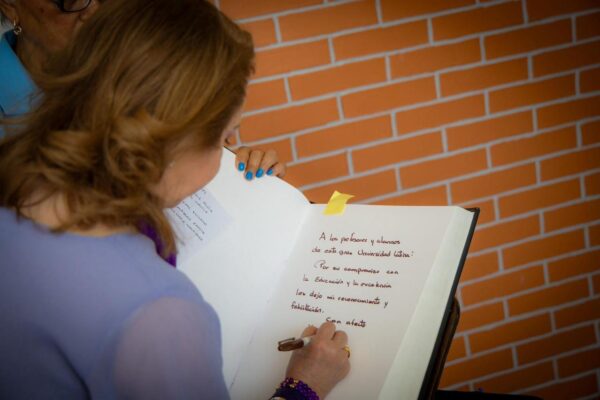 A los profesores y alumnos
de esta gran Universidad Latina:
¡Por su compromiso con
la Educación y la excelencia
les dejo mi reconocimiento y
felicitación.
Con afecto